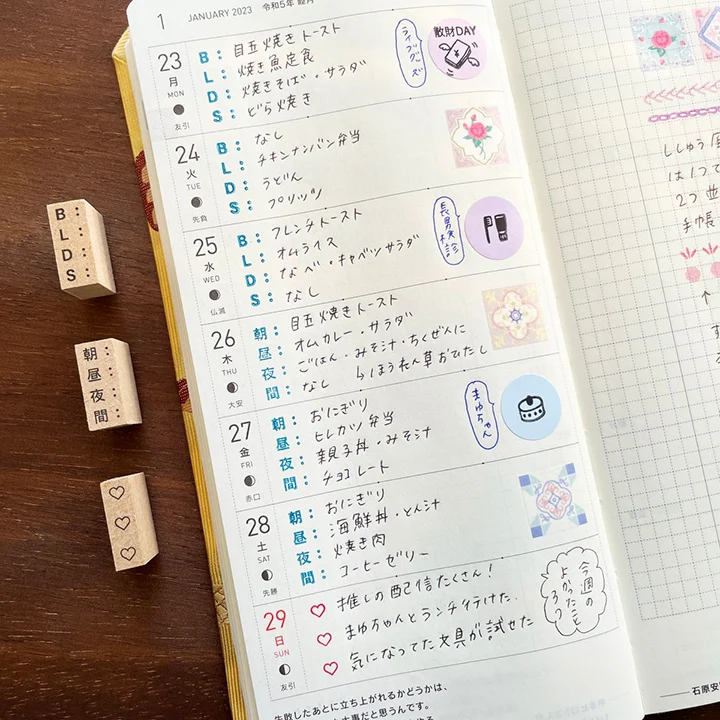 1 JANUARY 2023 令和5年 睦月
23
月
MON
友引
B: 目玉焼きトースト
L: 焼き魚定食
D: 焼きそば・サラダ
S: どら焼き
ライブグッズ
散財DAY
24
火
TUE
先負
B: なし
L: チキンナンバン弁当
D: うどん
S: プリッツ
25
水
WED
仏滅
B: フレンチトースト
L: オムライス
D: なべ・キャベツサラダ
S: なし
長男検診
26
木
THU
大安
朝: 目玉焼きトースト
昼: オムカレー・サラダ
夜: ごはん・みそ汁・ちくぜんに
間: なし ↳ほうれん草おひたし
27
金
FRI
赤口
朝: おにぎり
昼: ヒレカツ弁当
夜: 親子丼・みそ汁
間: チョコレート
まゆちゃん
28
土
SAT
先勝
朝: おにぎり
昼: 海鮮丼・とん汁
夜: 焼き肉
間: コーヒーゼリー
29
日
SUN
友引
♡ 推しの配信たくさん!
♡ まゆちゃんとランチ行けた.
♡ 気になってた文具が試せた
今週の
よかったこと
3つ
失敗したあとに立ち上がれるかどうかは、
大事だと思うんです。
B:
L:
D:
S:
朝:
昼:
夜:
間:
ししゅう
は1つで
2つ並
手帳
↑
石原安